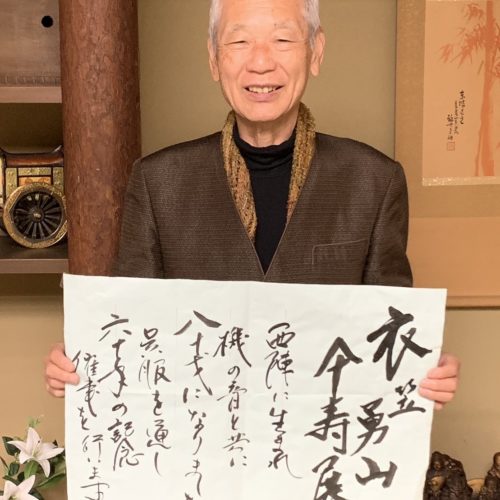 衣笠勇山
傘寿展
西陣に生まれ
機の音と共に
八十才になりました
呉服を通し
六十年の記念
催事を行います